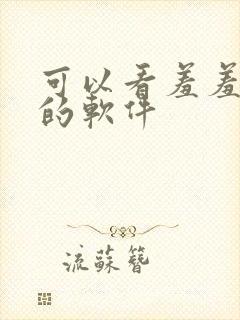 可以看羞羞
的軟件
流蘇簪